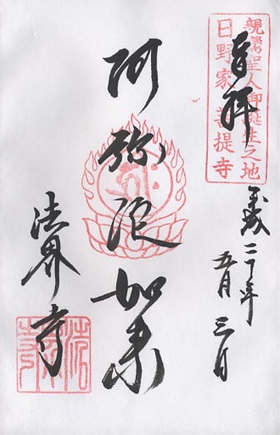 親鸞聖人御誕生之地
日野家菩提寺
奉拝
平成二十年
五月三日
阿弥陀如来
法界寺